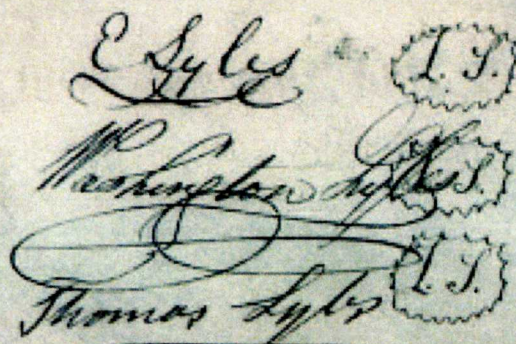 E Lyles L. S.
Washington Lyles L. S.
Thomas Lyles L. S.